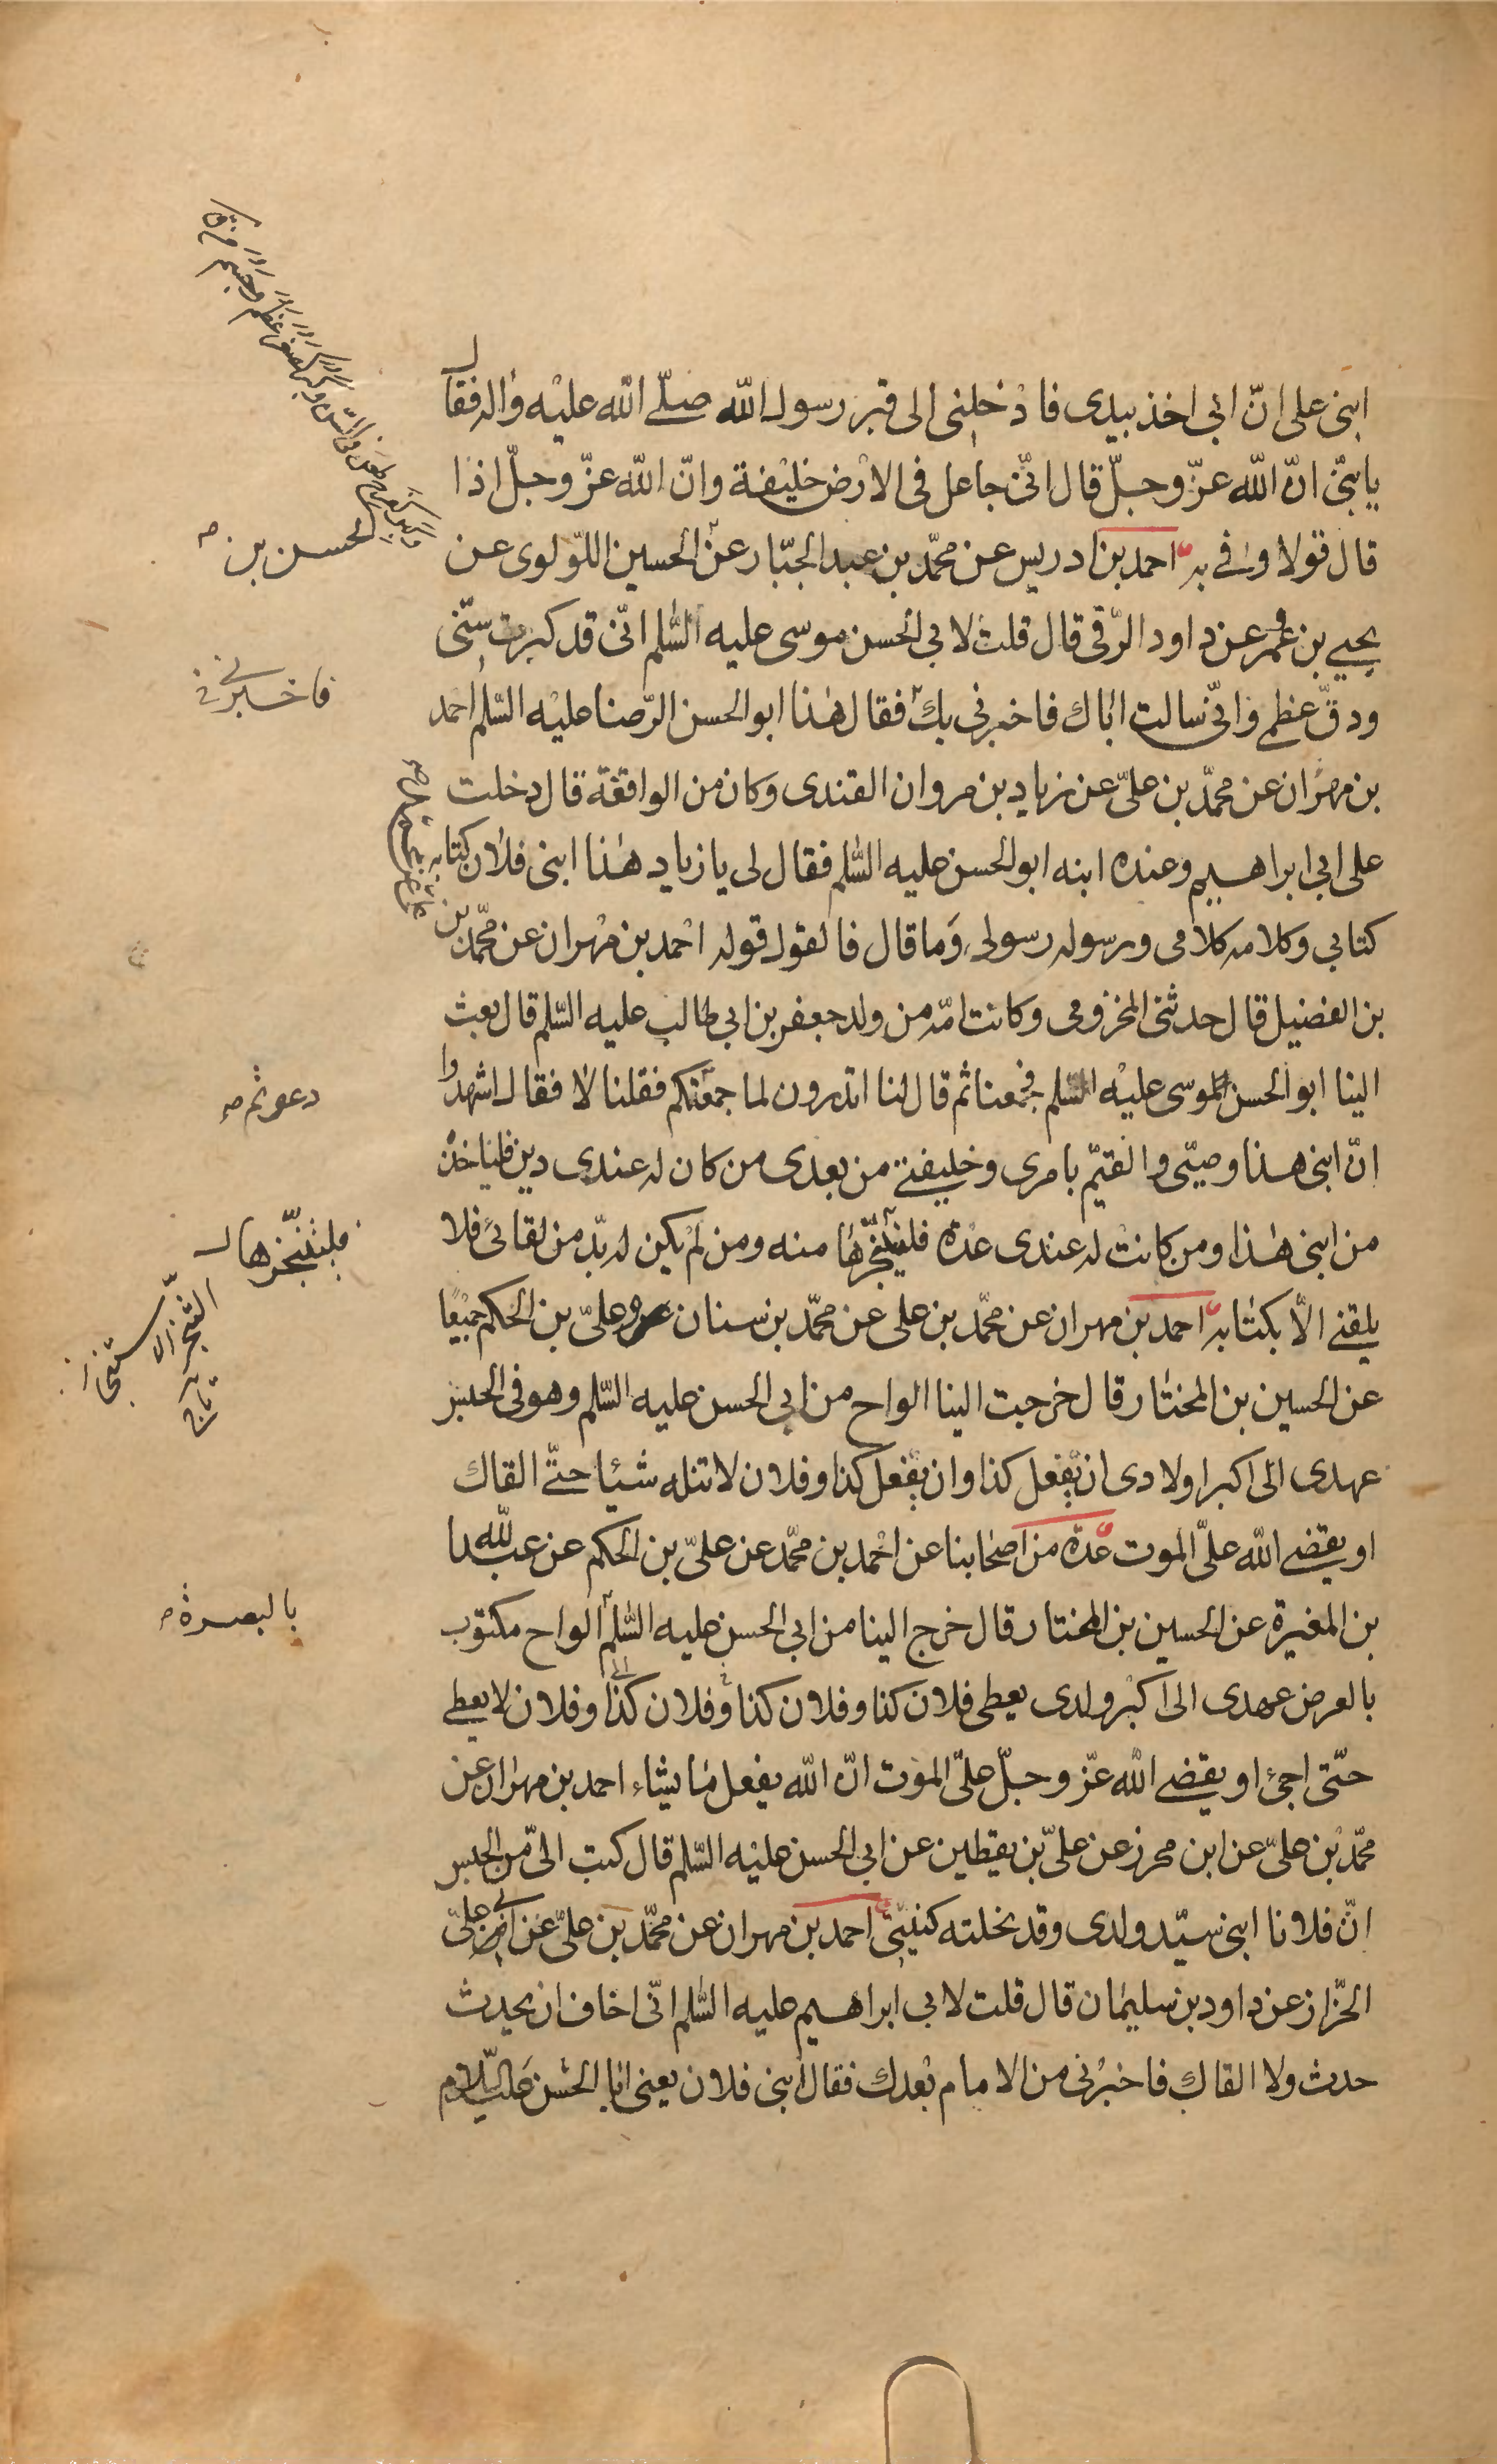 ابنى على انّ ابى اخذ بيدى فادْخلنى الى قبر رسول الله صلّى الله عليْه واله فقال
يا بنىّ انّ الله عزّ وجلّ قال انّى جاعل فى الارْض خليْفة وانّ الله عزّ وجلّ اذا
قال قولا وفى به احمد بن ادريس عن محمّد بن عبد الجبّار عن الحسين اللّولوى عن
يحيى بن عمرو عن داود الرّقى قال قلت لابى الحسن موسى عليه السّلم انّى قد كبرت سنّى
ودقّ عظمى وانّى سالت اباك فاخبرنى بك فقال هذا ابو الحسن الرّضا عليْه السّلم احمد
بن مهران عن محمّد بن علىّ عن زياد بن مروان القندى وكان من الواقفة قال دخلت
على ابى ابراهيم وعنده ابنه ابو الحسن عليه السّلم فقال لى يا زياد هذا ابنى فلان كتابه
كتابى وكلامه كلامى ورسوله رسولى وَما قال فالقول قوله احْمد بن مهْران عن محمّد بن
بن الفضيل قال حدثنى المخزومى وكانت امّه من ولد جعفر بن ابى طالب عليه السّلم قال بعث
الينا ابو الحسن الموسى عليْه السّلم فجمعنا ثم قال لنا اتدرون لما جمعْتكم فقلنا لا فقال اشهدوا
انّ ابنى هذا وصيّى والقيّم بامرى وخليفتى من بعدى من كان له عندى دين فلياخذه
من ابنى هذا ومن كانتْ له عندى عدة فليتنجّزها منه ومن لمْ يكن له بدّ من لقائى فلا
يلقنى الّا بكتابه احمد بن مهران عن محمّد بن على عن محمّد بن سنان وعلىّ بن الحكم جميْعًا
عن الحسين بن المختار قال خرجت الينا الواح من ابى الحسن عليه السّلم وهو فى الحبس
عهدى الى اكبر اولادى ان يفعل كذا وان يفعل كذا وفلان لا تنله شيئا حتّى القاك
او يقضى الله علىّ الموت عدّة من اصحابنا عن احْمد بن محمّد عن علىّ بن الحكم عن عبد الله
بن المغيرة عن الحسين بن المختار قال خرج الينا من ابى الحسن عليه السّلم الواح مكتوب
بالعرض عهدى الى اكبْر ولدى يعطى فلان كذا وفلان كذا وفلان كذا وفلان لا يعطى
حتّى اجئ او يقضى الله عزّ وجلّ علىّ الموْت انّ الله يفعل ما يشاء احمد بن مهران عن
محمّد بْن علىّ عن ابن محرز عن علىّ بْن يقطين عن ابى الحسن عليْه السّلم قال كتب الىّ من الحبس
انّ فلانا ابنى سيّد ولدى وقد نحلته كنيتى احمد بن مهران عن محمّد بن علىّ عن ابى علىّ
الخزّاز عن داود بن سليمان قال قلت لابى ابراهيم عليه السّلم انّى اخاف ان يحدث
حدث ولا القاك فاخبرْنى من الامام بعْدك فقال ابنى فلان يعنى ابا الحسن عليه السّلام
الحسن بن
فاخبرنى
دعوتكم
فليتنجّزها
التنجّز الاستنجاز
تاج
بالبصرة